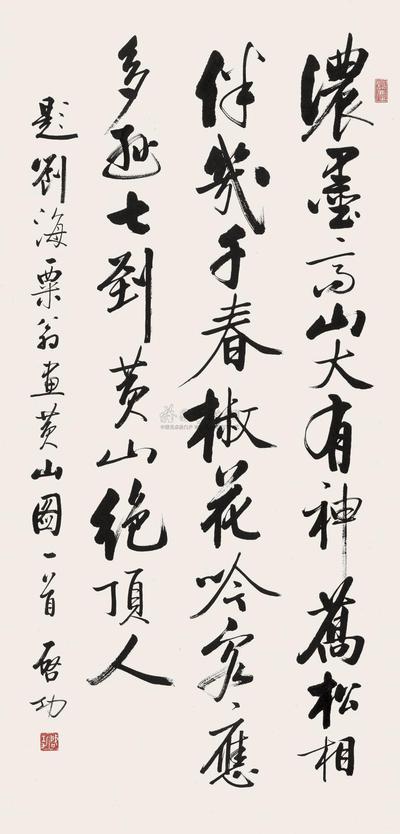 濃墨高山大有神喬松相
伴幾千春椒花吟客應
多遜七到黃山絕頂人
題劉海粟翁畫黃山圖一首 啓功